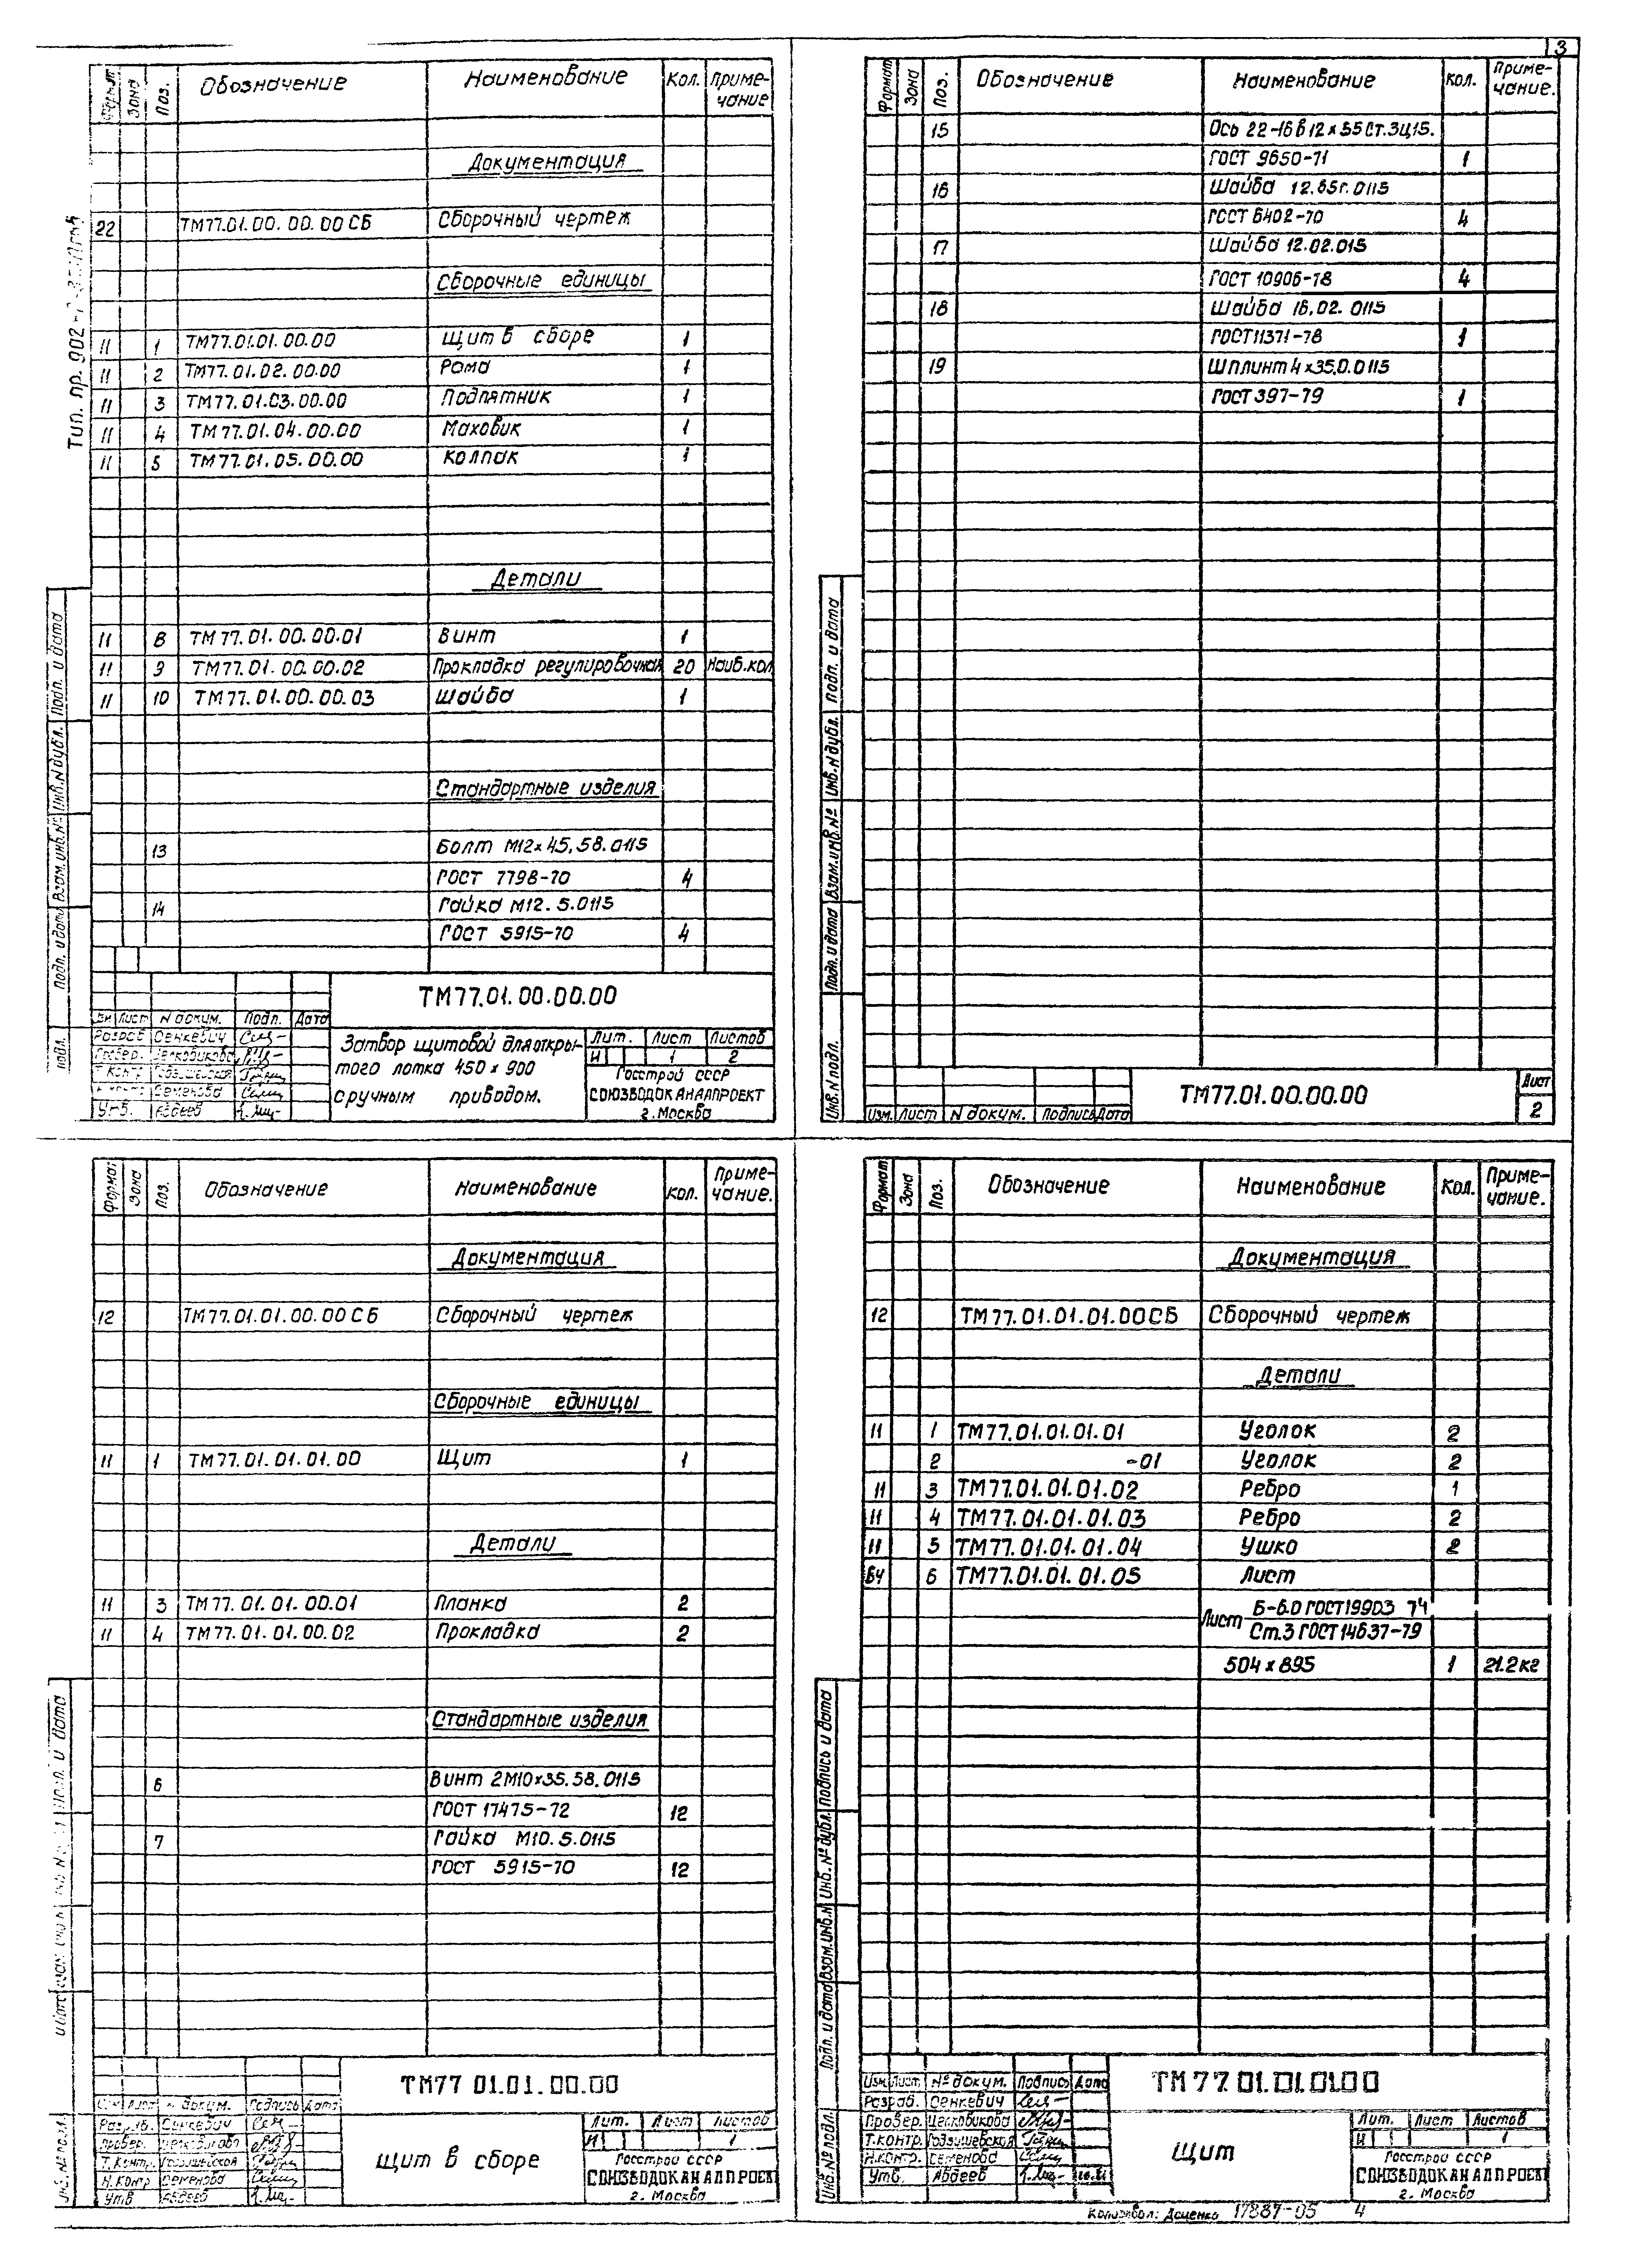 3
Формат Зона Поз. Обозначение Наименование Кол. Приме-
чание
Документация
22 ТМ77.01.00.00.00 СБ Сборочный чертеж
Сборочные единицы
11 1 ТМ77.01.01.00.00 Щит в сборе 1
11 2 ТМ77.01.02.00.00 Рама 1
11 3 ТМ77.01.03.00.00 Подпятник 1
11 4 ТМ77.01.04.00.00 Маховик 1
11 5 ТМ77.01.05.00.00 Колпак 1
Детали
11 8 ТМ77.01.00.00.01 Винт 1
11 9 ТМ77.01.00.00.02 Прокладка регулировочная 20 Наиб.кол
11 10 ТМ77.01.00.00.03 Шайба 1
Стандартные изделия
13 Болт М12×45.58.0115
ГОСТ 7798-70 4
14 Гайка М12.5.0115
ГОСТ 5915-70 4
Тип. пр. 902-
Подп. и дата
Инв.N дубл.
Взам.инв.N°
Подп. и дата
подл.
ТМ77.01.00.00.00
Лист N докум. Подп. Дата
Разраб Сенкевич
Провер. Целковикова
Т.контр Годзишевская
Семенова
Утв. Авдеев
Затвор щитовой для откры-
того лотка 450×900
с ручным приводом.
Лит. Лист Листов
И 1 2
Госстрой СССР
СОЮЗВОДОКАНАЛПРОЕКТ
г. Москва
Формат Зона Поз. Обозначение Наименование Кол. Приме-
чание.
15 Ось 22-16в12×55Ст.3Ц15.
ГОСТ 9650-71 1
16 Шайба 12.65г.0115
ГОСТ 6402-70 4
17 Шайба 12.02.015
ГОСТ 10906-78 4
18 Шайба 16.02.0115
ГОСТ 11371-78 1
19 Шплинт 4×35.0.0115
ГОСТ 397-79 1
Подп. и дата
Инв.N дубл.
Взам.инв.N°
Подп. и дата
Инв.N подл.
Изм. Лист N докум. Подпись Дата
ТМ77.01.00.00.00
Лист
2
Формат Зона Поз. Обозначение Наименование Кол. Приме-
чание.
Документация
12 ТМ77.01.01.00.00 СБ Сборочный чертеж
Сборочные единицы
11 1 ТМ77.01.01.01.00 Щит 1
Детали
11 3 ТМ77.01.01.00.01 Планка 2
11 4 ТМ77.01.01.00.02 Прокладка 2
Стандартные изделия
6 Винт 2М10×35.58.0115
ГОСТ 17475-72 12
7 Гайка М10.5.0115
ГОСТ 5915-70 12
ТМ77 01.01.00.00
Лист докум. Подпись Дата
Разраб. Сенкевич
Провер. Целковикова
Т.контр. Годзишевская
Н.контр Семенова
Утв Авдеев
Щит в сборе
Лит. Лист Листов
И 1
Госстрой СССР
СОЮЗВОДОКАНАЛПРОЕКТ
г. Москва
Формат Зона Поз. Обозначение Наименование Кол. Приме-
чание.
Документация
12 ТМ77.01.01.01.00 СБ Сборочный чертеж
Детали
11 1 ТМ77.01.01.01.01 Уголок 2
2 -01 Уголок 2
11 3 ТМ77.01.01.01.02 Ребро 1
11 4 ТМ77.01.01.01.03 Ребро 2
11 5 ТМ77.01.01.01.04 Ушко 2
БЧ 6 ТМ77.01.01.01.05 Лист
Лист Б-6.0 ГОСТ19903 74
Ст.3 ГОСТ14637-79
504×895 1 21.2кг
Подпись и дата
Инв.N° дубл.
Взам.инв.N
Подп. и дата
Инв.N° подл.
ТМ77.01.01.01.00
Изм. Лист N° докум. Подпись Дата
Разраб. Сенкевич
Провер. Целковикова
Т.контр. Годзишевская
Н.контр. Семенова
Утв. Авдеев
Щит
Лит. Лист Листов
И 1
Госстрой СССР
СОЮЗВОДОКАНАЛПРОЕКТ
г. Москва
Копировал: Доценко 17887-05 4